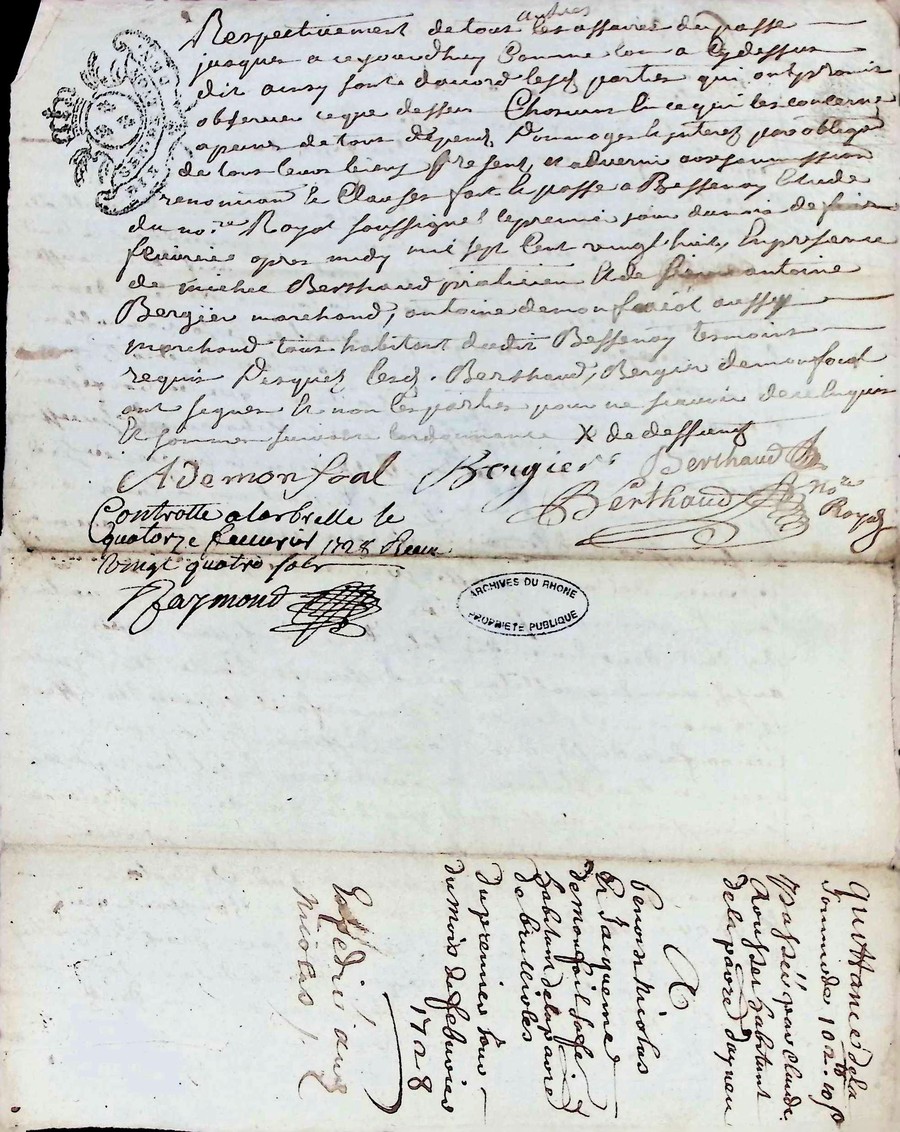 Respectivement de tous autres les affaires du passe
jusques a ce jourdhuy Comme lon a Cy dessus
dit ainsy sont daccord lesd parties qui ont promis
observer ce que dessus Chascun En ce qui les concerne
a peines de tous despens Dommages Et interez par oblige
de tous leurs biens present et advenir avec soumission
renonciaon Et Clauses fait Et passe a Bessenay Etude
du no.re Royal soussigné le premier jour du mois de
feuvrier apres midy mil sept Cent vingt huit En presence
de michel Berthaud praticien Et de antoine
Bergier marchand, antoine demonfoeol aussy
marchand tous habitant dudit Bessenay tesmoins
requis Desquez lesd. Berthaud, Bergier demonfoeal
ont signes Et non les parties pour ne scavoir de ce Enquis
Et sommes suivant lordonnance X de dessus
A Demonfoal Bergier Berthaud
Berthaud No.re
Royal
Controlle a larbresle le
quatorze feuvrier 1728 Receu
vingt quatre sols
Raymond
ARCHIVES DU RHONE
PROPRIETE PUBLIQUE
Quittance de la
somme de 102 tt 10 s
passée par Claude
Rousset habitant
de la paroisse
A
benoist Nicolas
Et Jacqueme
demonfoit
habitant de la paroe
de brullioles
Du premier Jour
du mois de febvrier
1728
Expedié aud
Nicolas